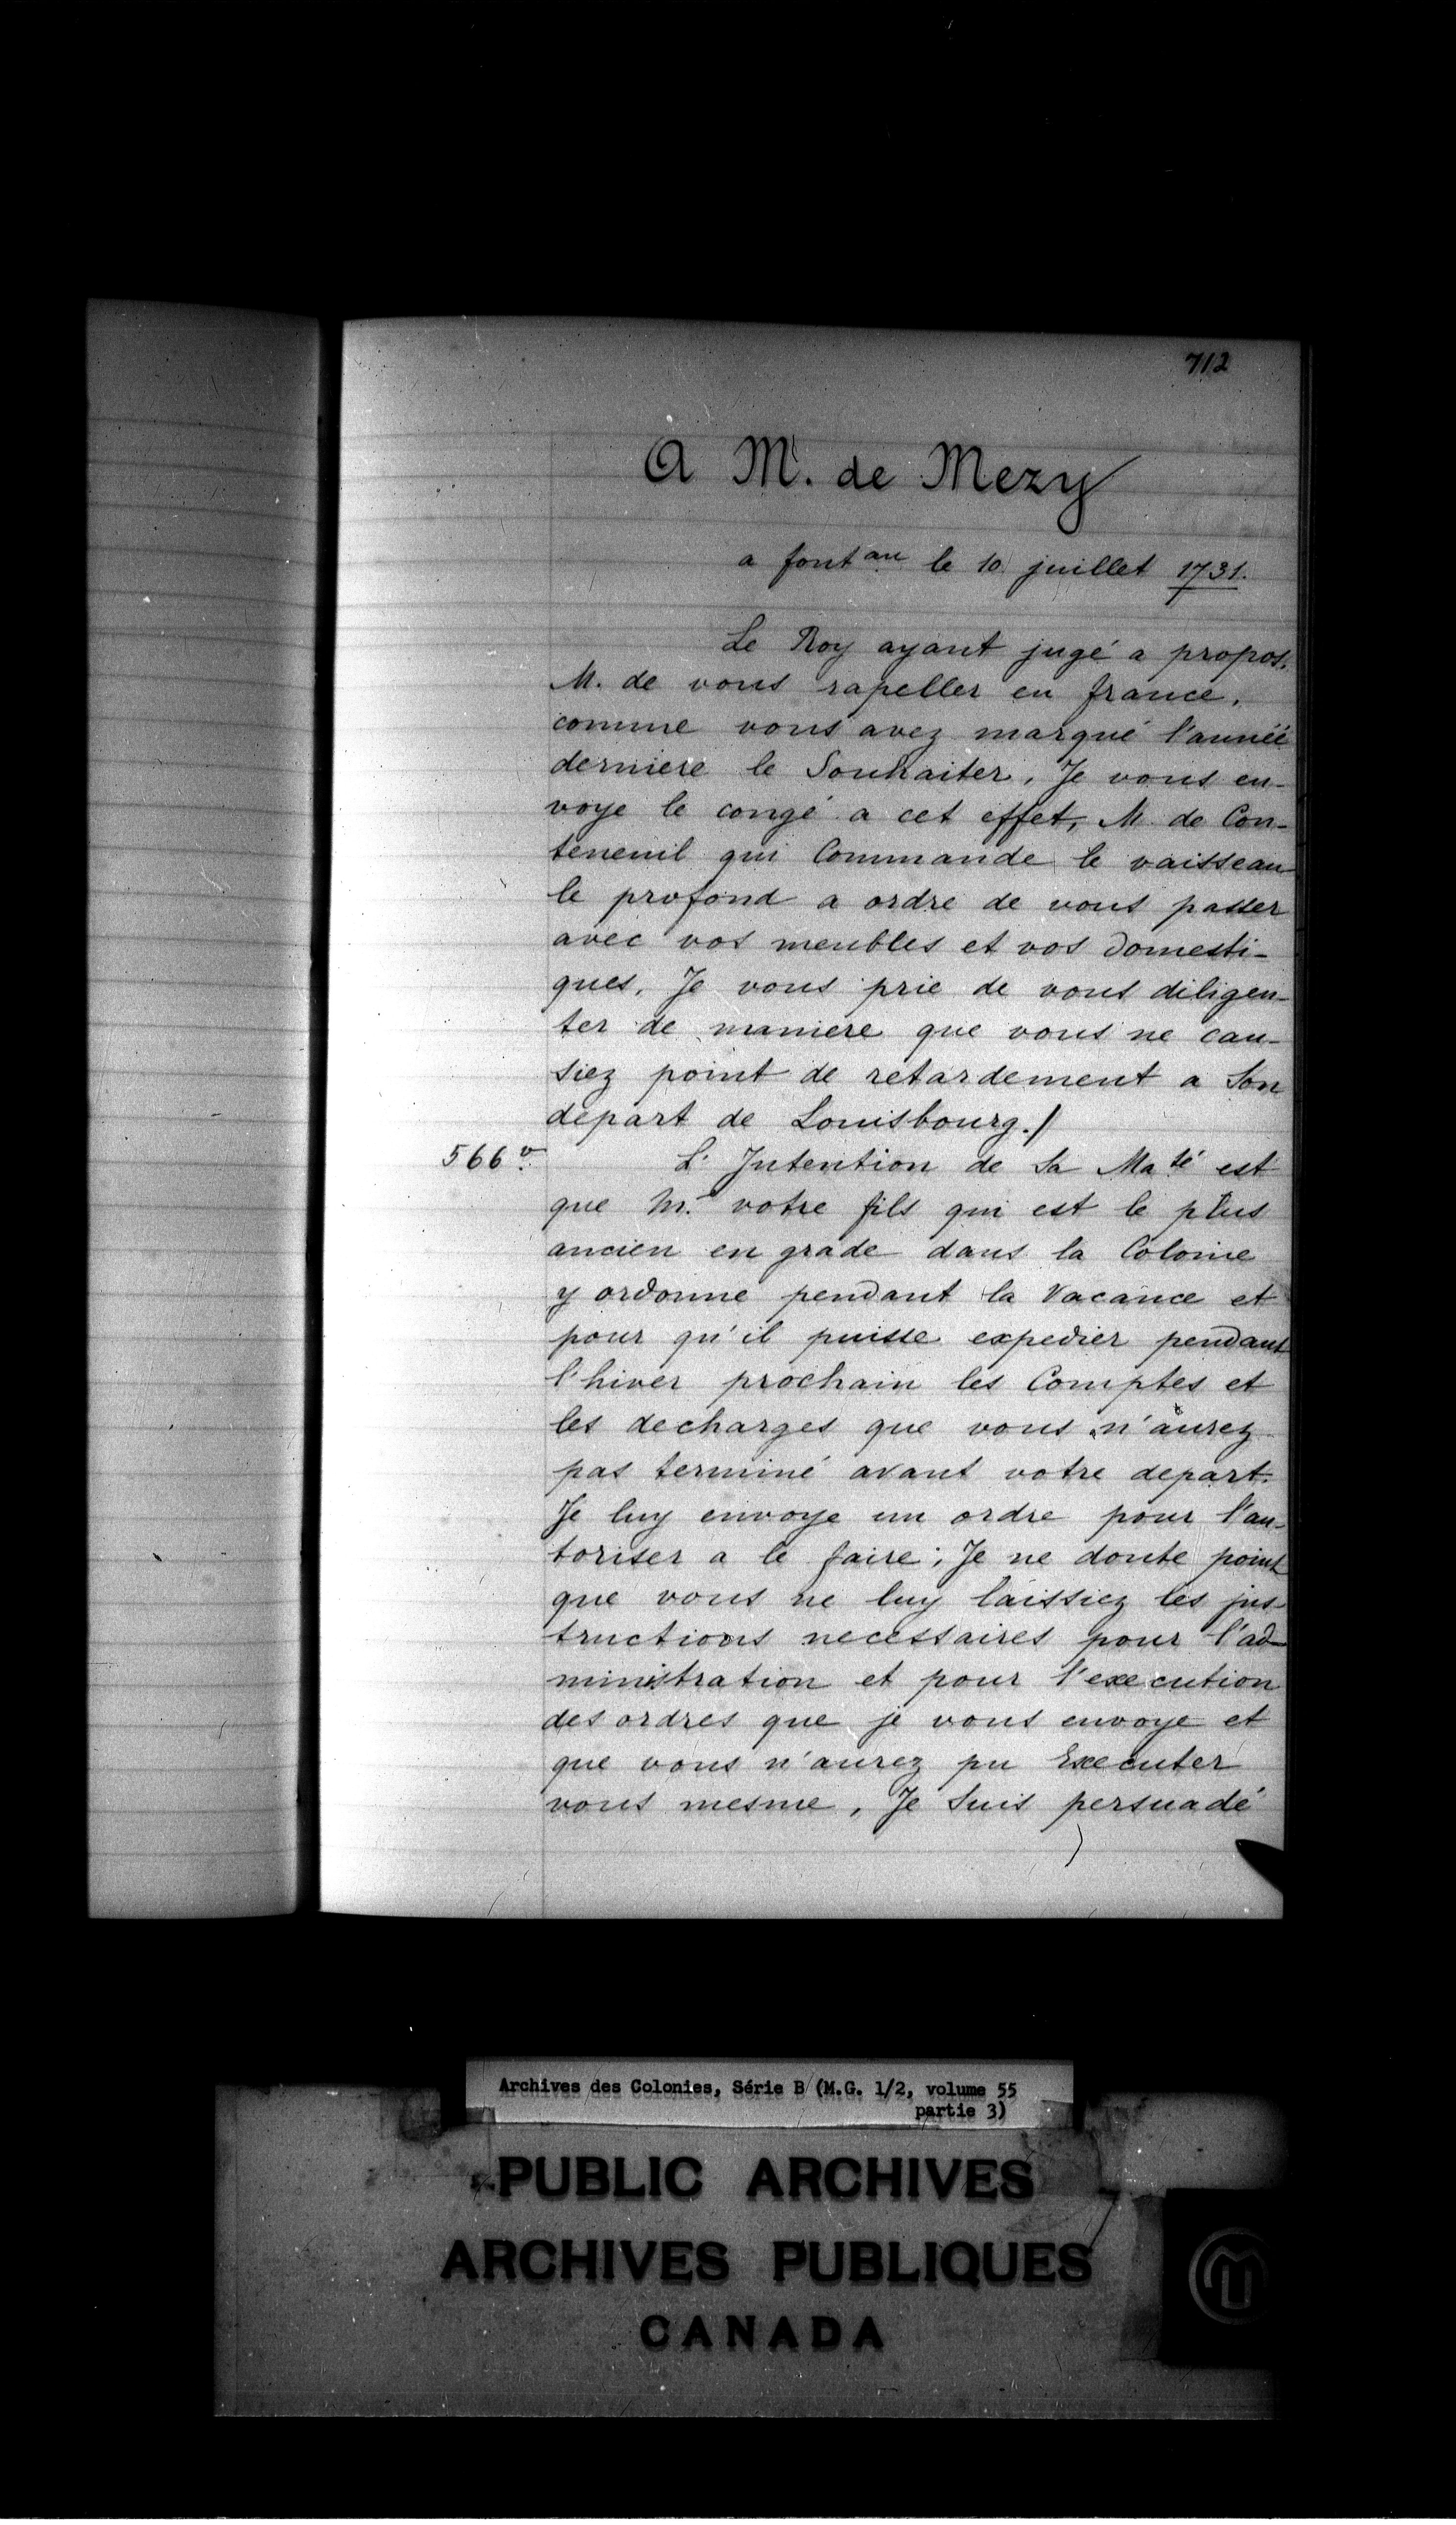 712
A Mr. de Mezy
a font au le 10 juillet 1731.
Le Roy ayant jugé a propos,
M. de vous rapeller en france,
comme vous avez marqué l'année
derniere le Souhaiter, Je vous en-
voye le congé a cet effet, M. de Con-
teneuil qui Commande le vaisseau
le profond a ordre de vous passer
avec vos meubles et vos domesti-
ques, Je vous prie de vous diligen-
ter de maniere que vous ne cau-
siez point de retardement a Son
depart de Louisbourg./
566 v.
L'Intention de Sa Maté est
que Mr. votre fils qui est le plus
ancien en grade dans la Colonie
y ordonne pendant la Vacance et
pour qu'il puisse expedier pendant
l'hiver prochain les Comptes et
les decharges que vous n'aurez
pas terminé avant votre depart.
Je luy envoye un ordre pour l'au-
toriser a le faire; Je ne doute point
que vous ne luy laissiez les ins-
tructions necessaires pour l'ad-
ministration et pour l'execution
des ordres que je vous envoye et
que vous n'aurez pu Executer
vous mesme, Je Suis persuadé
Archives des Colonies, Série B (M.G. 1/2, volume 55
partie 3)
PUBLIC ARCHIVES
ARCHIVES PUBLIQUES
CANADA